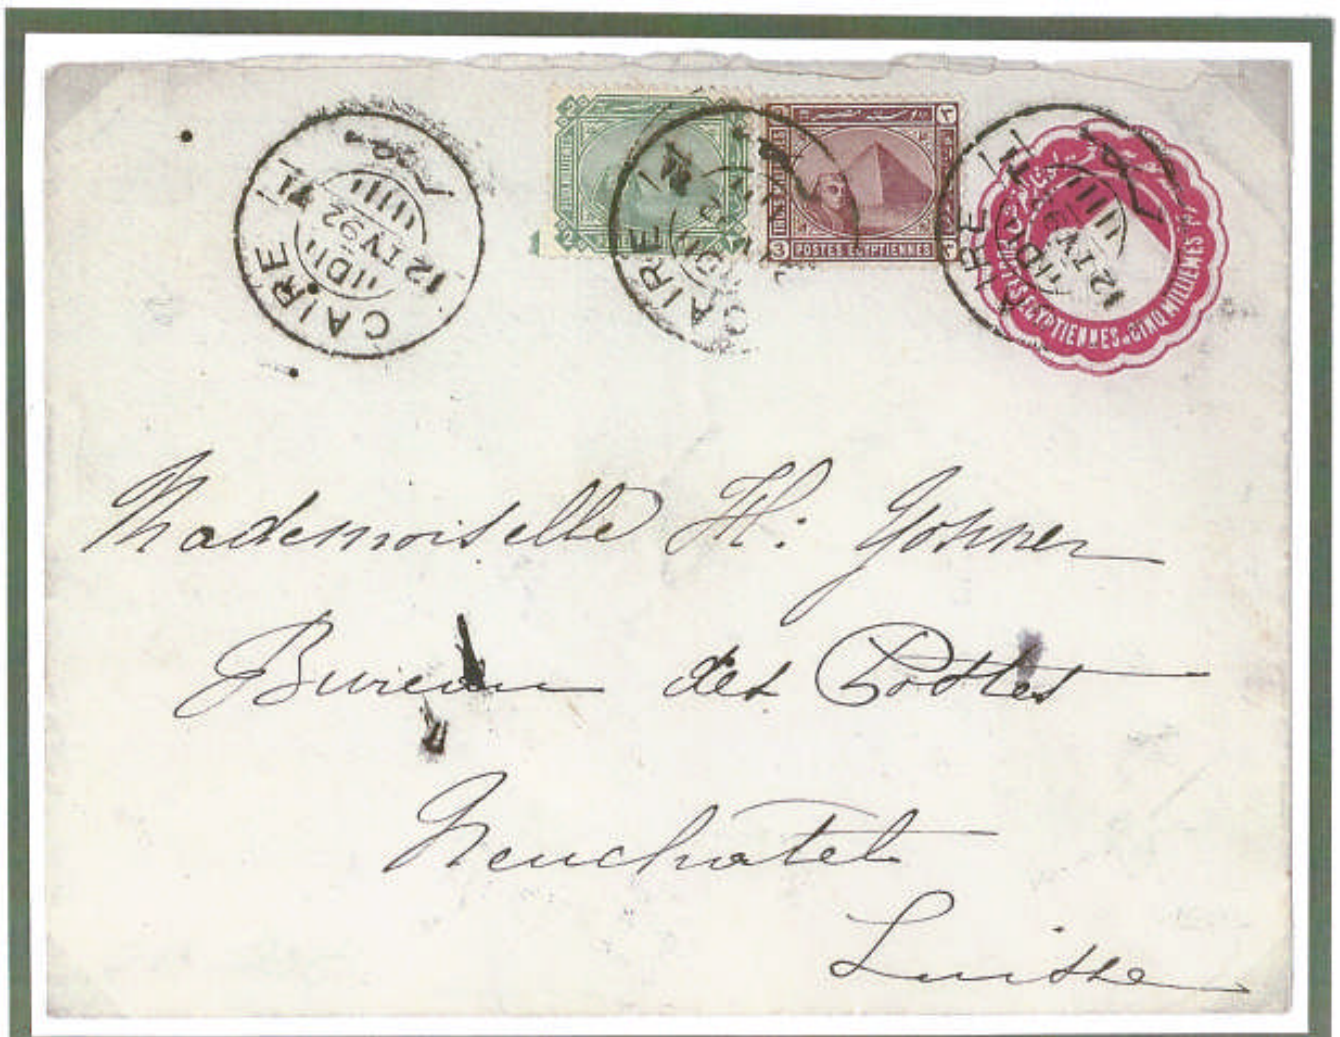 CAIRE
12 IV 92
2
2
CAIRE
3
٣
POSTES EGYPTIENNES
CAIRE
12 IV
POSTES EGYPTIENNES CINQ MILLIEMES
Mademoiselle H:
Bureau des Postes
Neuchatel
Suisse